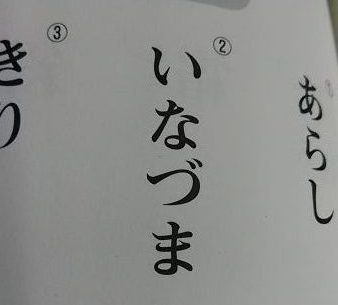 あらし
②
いなづま
③
きり